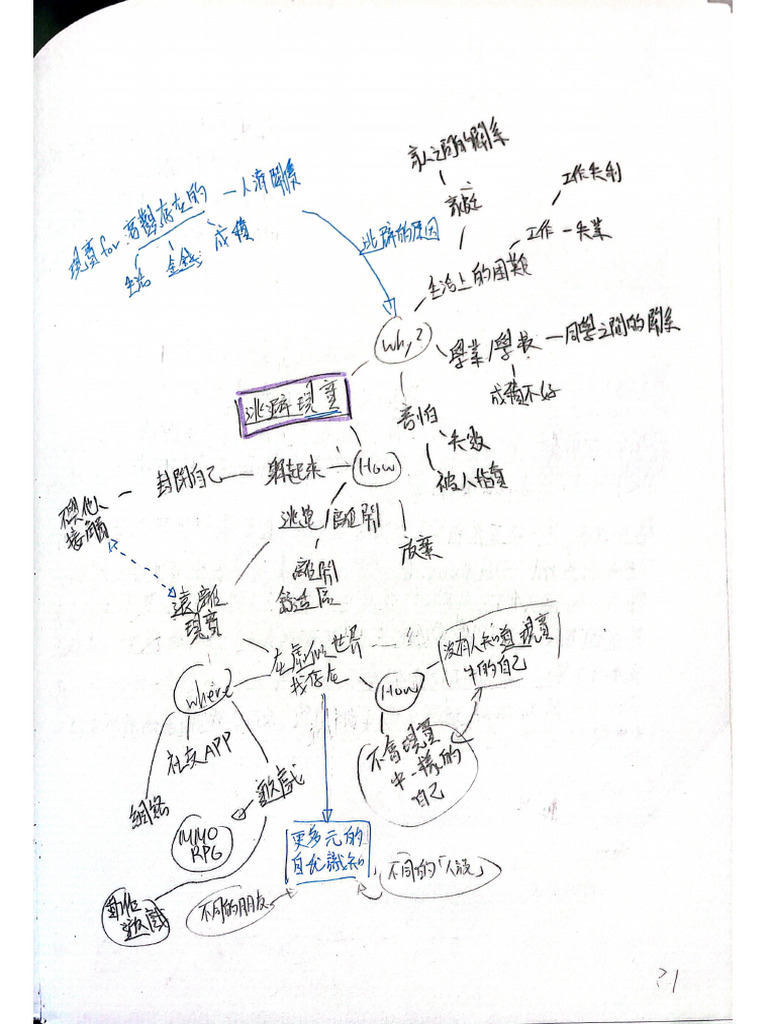 家人之間的關系
家庭
工作失利
工作 - 失業
生活上的困難
現實for 存在的 - 人濟關係
生活 金錢 成積
逃辟的原因
Why?
學業/學長 - 同學之間的關系
成積不好
逃辟現實
害怕
失敗
被人指責
How
躲起來
封閉自己
接觸
逃 /離開
放棄
離開
舒适區
遠離
現實
在虛似世界
找存在
How
沒有人知道現實
中的自己
不會現實
中一樣的
自己
where
社交APP
網絡
遊戲
MMO
RPG
遊戲
更多元的
自我識知
不同的朋友
不同的「人設」
21